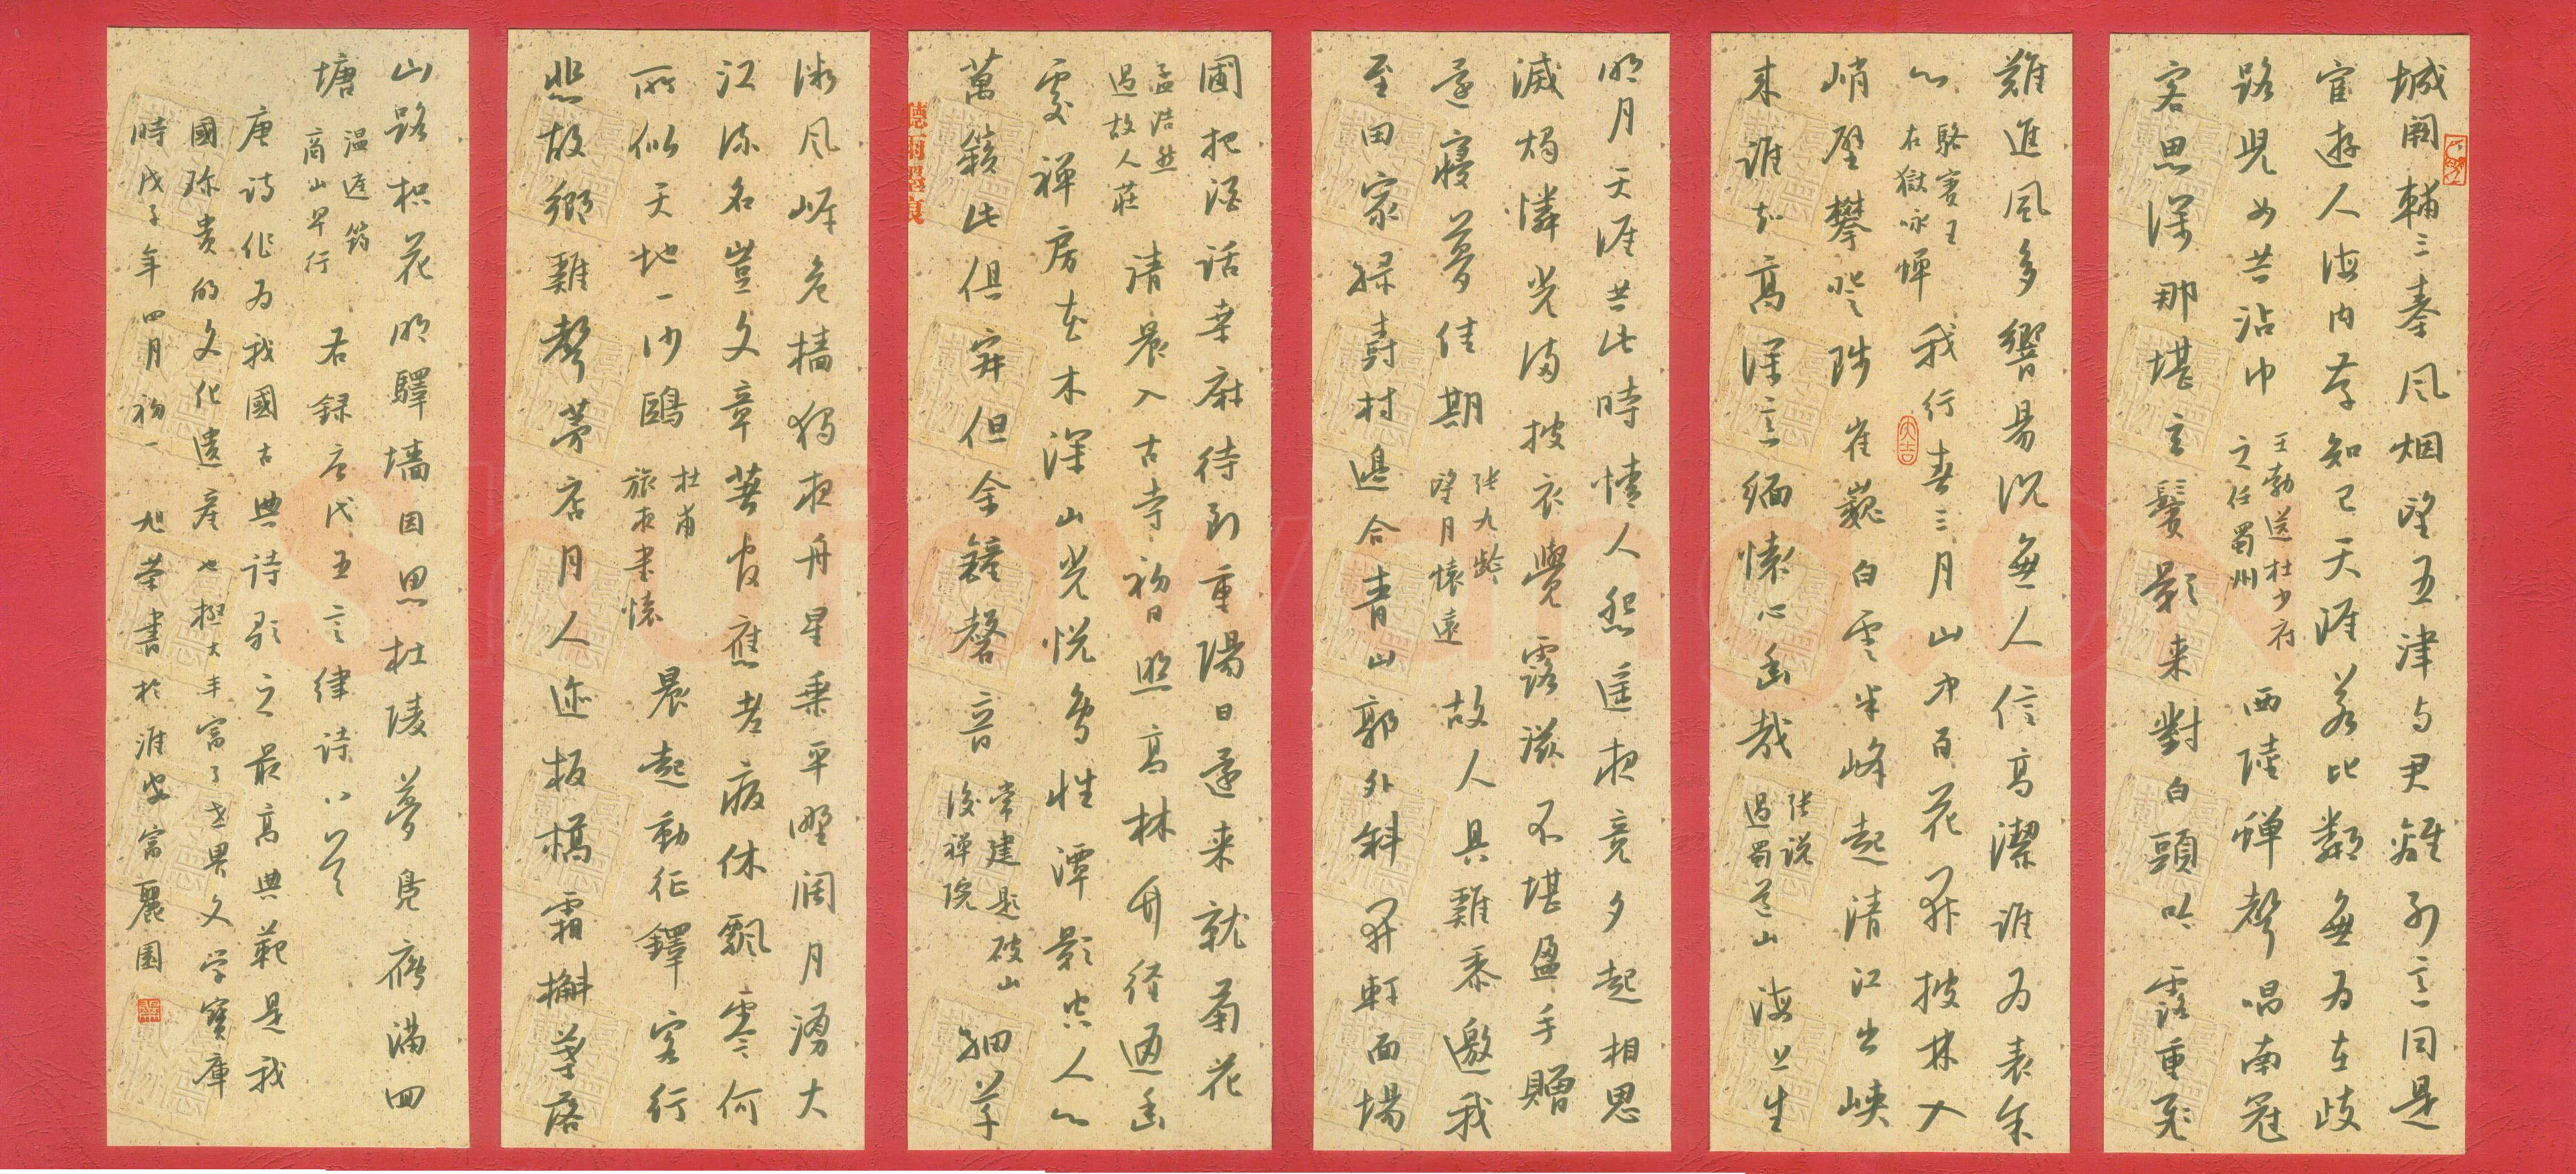 城闕輔三秦風烟望五津与君離別意同是
宦遊人海内存知己天涯若比鄰無為在歧
路児女共沾巾
王勃送杜少府
之任蜀州
西陸蟬聲唱南冠
客思深那堪玄鬢影来對白頭吟露重飛
難進風多響易沉無人信高潔誰為表余
心
駱賓王
在獄咏蟬
我行春三月山中百花開披林入
峭壁攀登陟崔巍白雲半峰起清江出峽
来誰知高深意緬懷心幽哉
张说
過蜀道山
海上生
明月天涯共此時情人怨遥夜竟夕起相思
滅燭憐光滿披衣覺露滋不堪盈手贈
還寝夢佳期
张九龄
望月懐遠
故人具雞黍邀我
至田家緑樹村邊合青山郭外斜開軒面場
圃把酒話桑麻待到重陽日還来就菊花
孟浩然
過故人莊
清晨入古寺初日照高林竹径通幽
處禅房花木深山光悦鳥性潭影空人心
萬籟此俱寂但余鐘磬音
常建题破山
後禅院
細草
微风岸危檣獨夜舟星垂平野阔月湧大
江流名豈文章著官應老病休飄零何
所似天地一沙鷗
杜甫
旅夜書懷
晨起動征鐸客行
悲故鄉雞聲茅店月人迹板橋霜槲葉落
山路枳花明驛墙因思杜陵夢鳧雁滿回
塘
温庭筠
商山早行
右録唐代五言律詩八首
唐詩作为我國古典詩歌之最高典範是我
國珍贵的文化遗產也極大丰富了世界文学寶庫
時戊子年四月初一
旭荣書於淮安富麗園
大吉
德雨墨痕
shufawang.cn